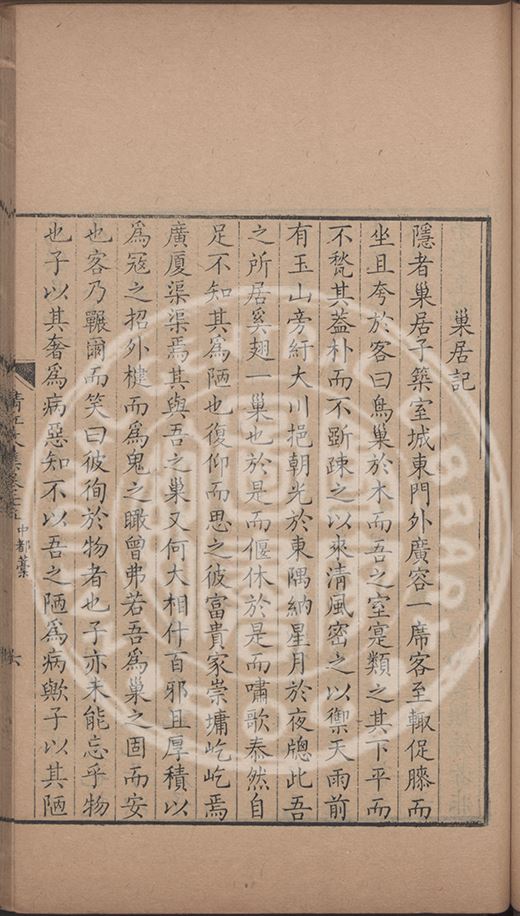 巢居記
隱者巢居子築室城東門外廣容一席客至輙促膝而
坐且夸於客曰鳥巢於木而吾之室寔類之其下平而
不甃其葢朴而不斵疎之以來清風密之以禦天雨前
有玉山旁紆大川挹朝光於東隅納星月於夜牕此吾
之所居奚翅一巢也於是而偃休於是而嘯歌泰然自
足不知其爲陋也復仰而思之彼富貴家崇墉屹屹焉
廣厦渠渠焉其與吾之巢又何大相什百邪且厚積以
爲冦之招外楗而爲鬼之瞰曾弗若吾爲巢之固而安
也客乃囅爾而笑曰彼徇於物者也子亦未能忘乎物
也子以其奢爲病惡知不以吾之陋爲病歟子以其陋
清江文集卷二十五 中都藁 六